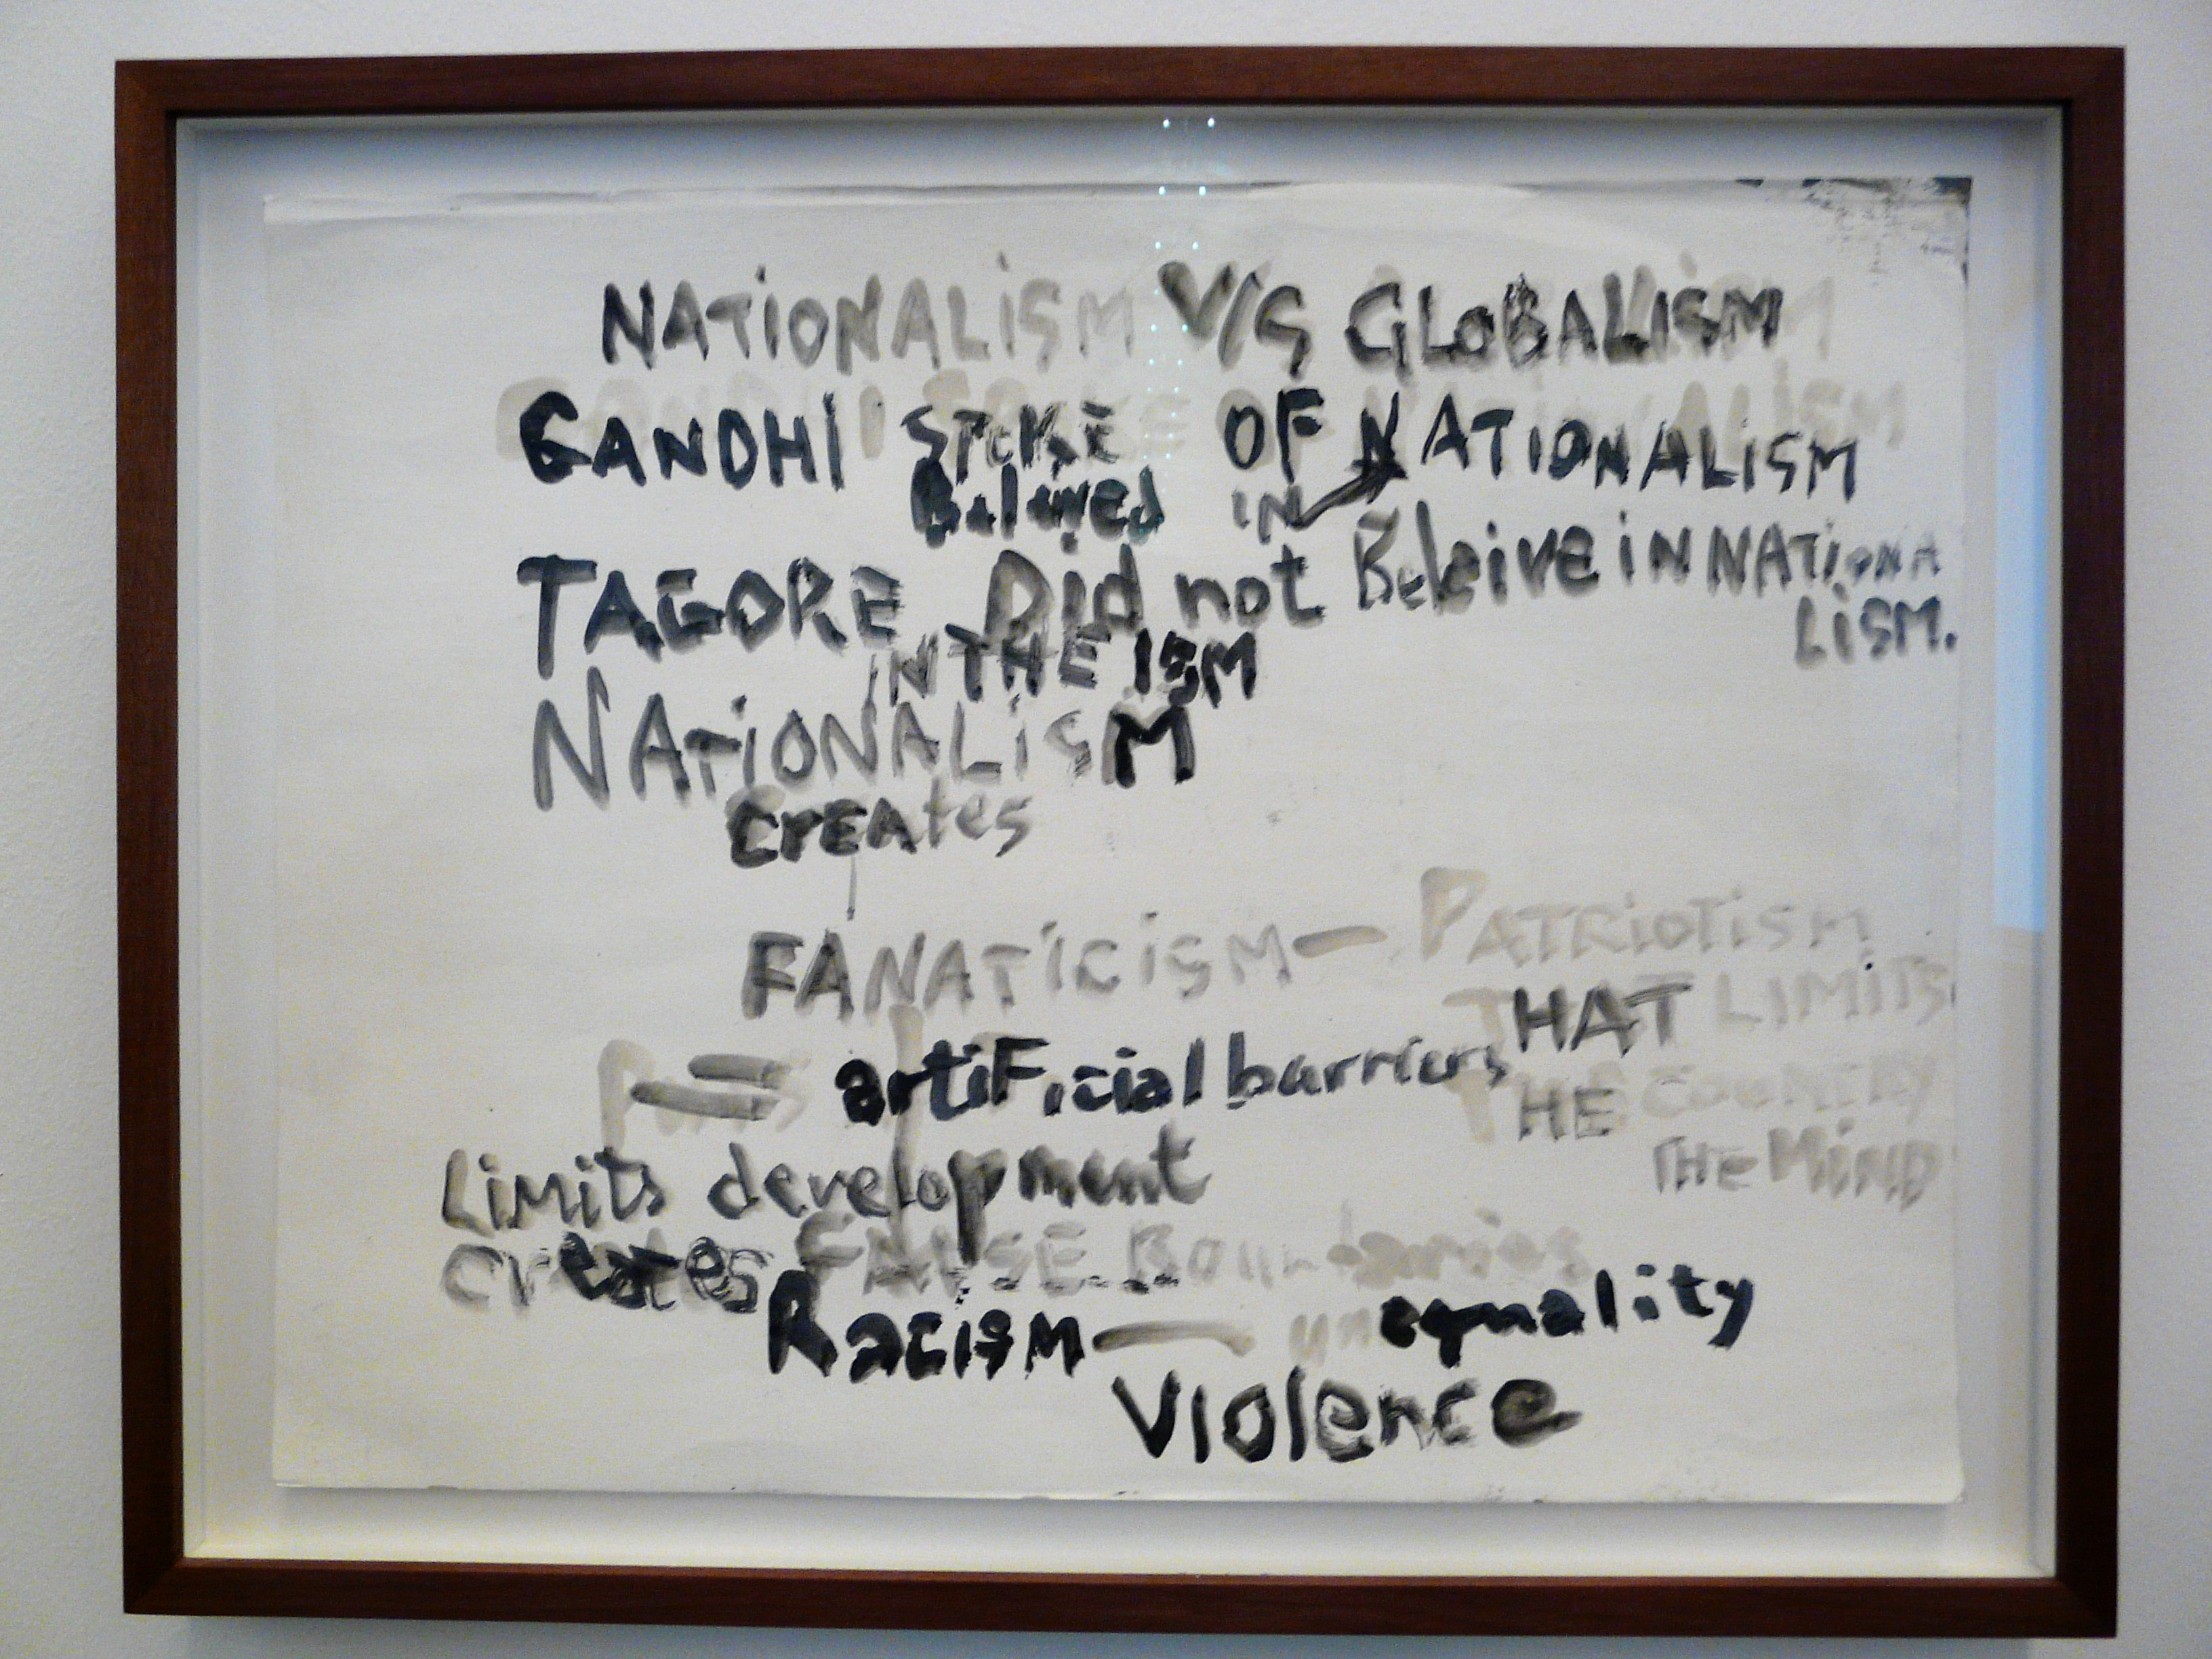 NATIONALISM V/S GLOBALISM
GANDHI SPOKE OF NATIONALISM
IN
TAGORE Did not Beleive iN NATIONA
LISM.
IN THE ISM
NATIONALISM
CrEAtes
FANATICISM — PATRIOTISM
THAT LIMITS
= artiFicial barriers
THE COUNTRY
THE MIND
Limits development
Creates FALSE Boundaries
RacisM — unequality
Violence